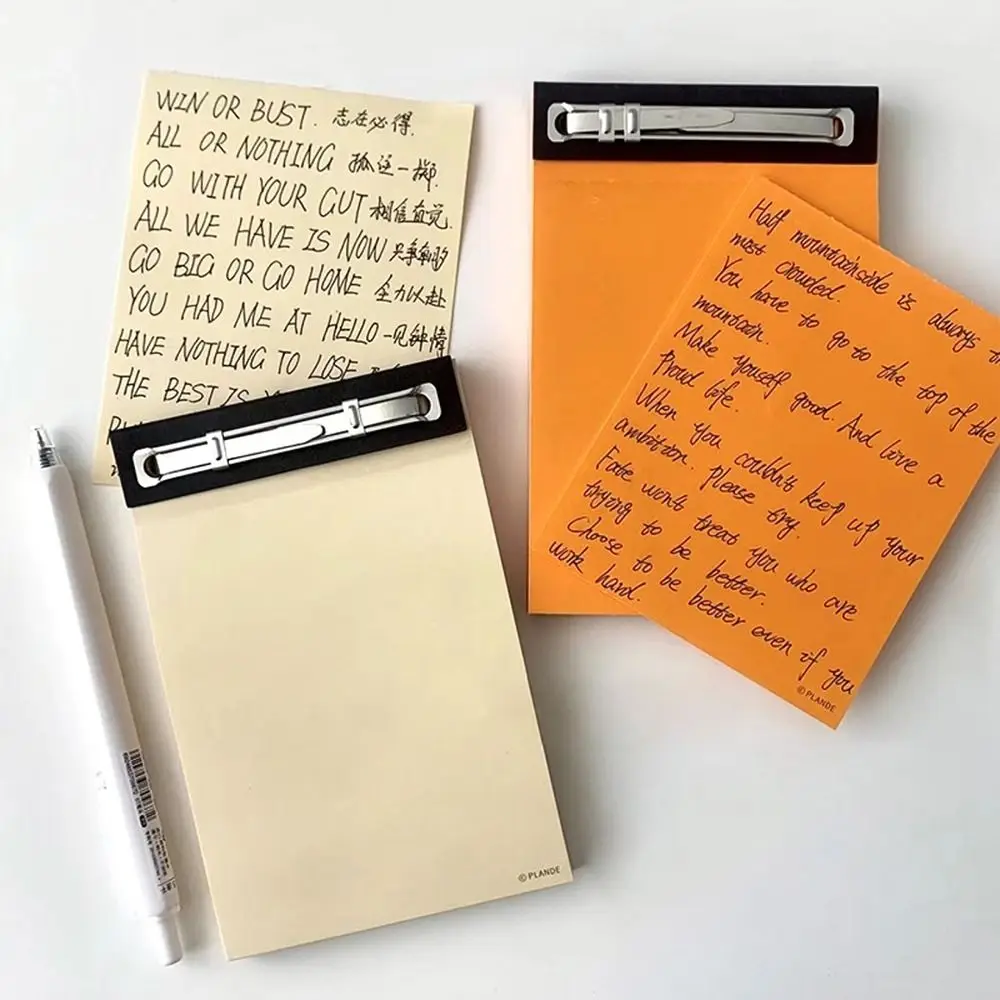 WIN OR BUST. 志在必得.
ALL OR NOTHING 孤注一掷.
GO WITH YOUR GUT 相信直觉.
ALL WE HAVE IS NOW 只争朝夕
GO BIG OR GO HOME 全力以赴
YOU HAD ME AT HELLO 一见钟情
HAVE NOTHING TO LOSE
THE BEST IS
© PLANDE
Half mountainside is always
most crowded.
You have to go to the top of the
mountain.
Make yourself good. And love a
Proud life.
When you couldn't keep up your
ambition. Please try.
Fate won't treat you who are
trying to be better.
Choose to be better even if you
work hard.
© PLANDE